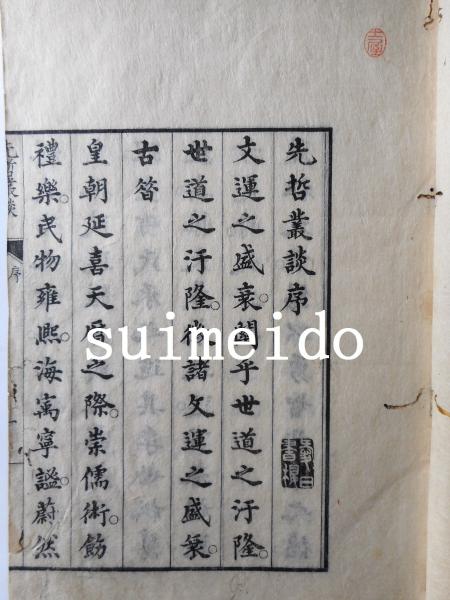 先哲叢談序
文運之盛衰關乎世道之汙隆。
世道之汙隆。徴諸文運之盛衰。
古昔
皇朝延喜天曆之際。崇儒術飭
禮樂。民物雍熙。海㝢寧謐。蔚然
先哲叢談
序
suimeido